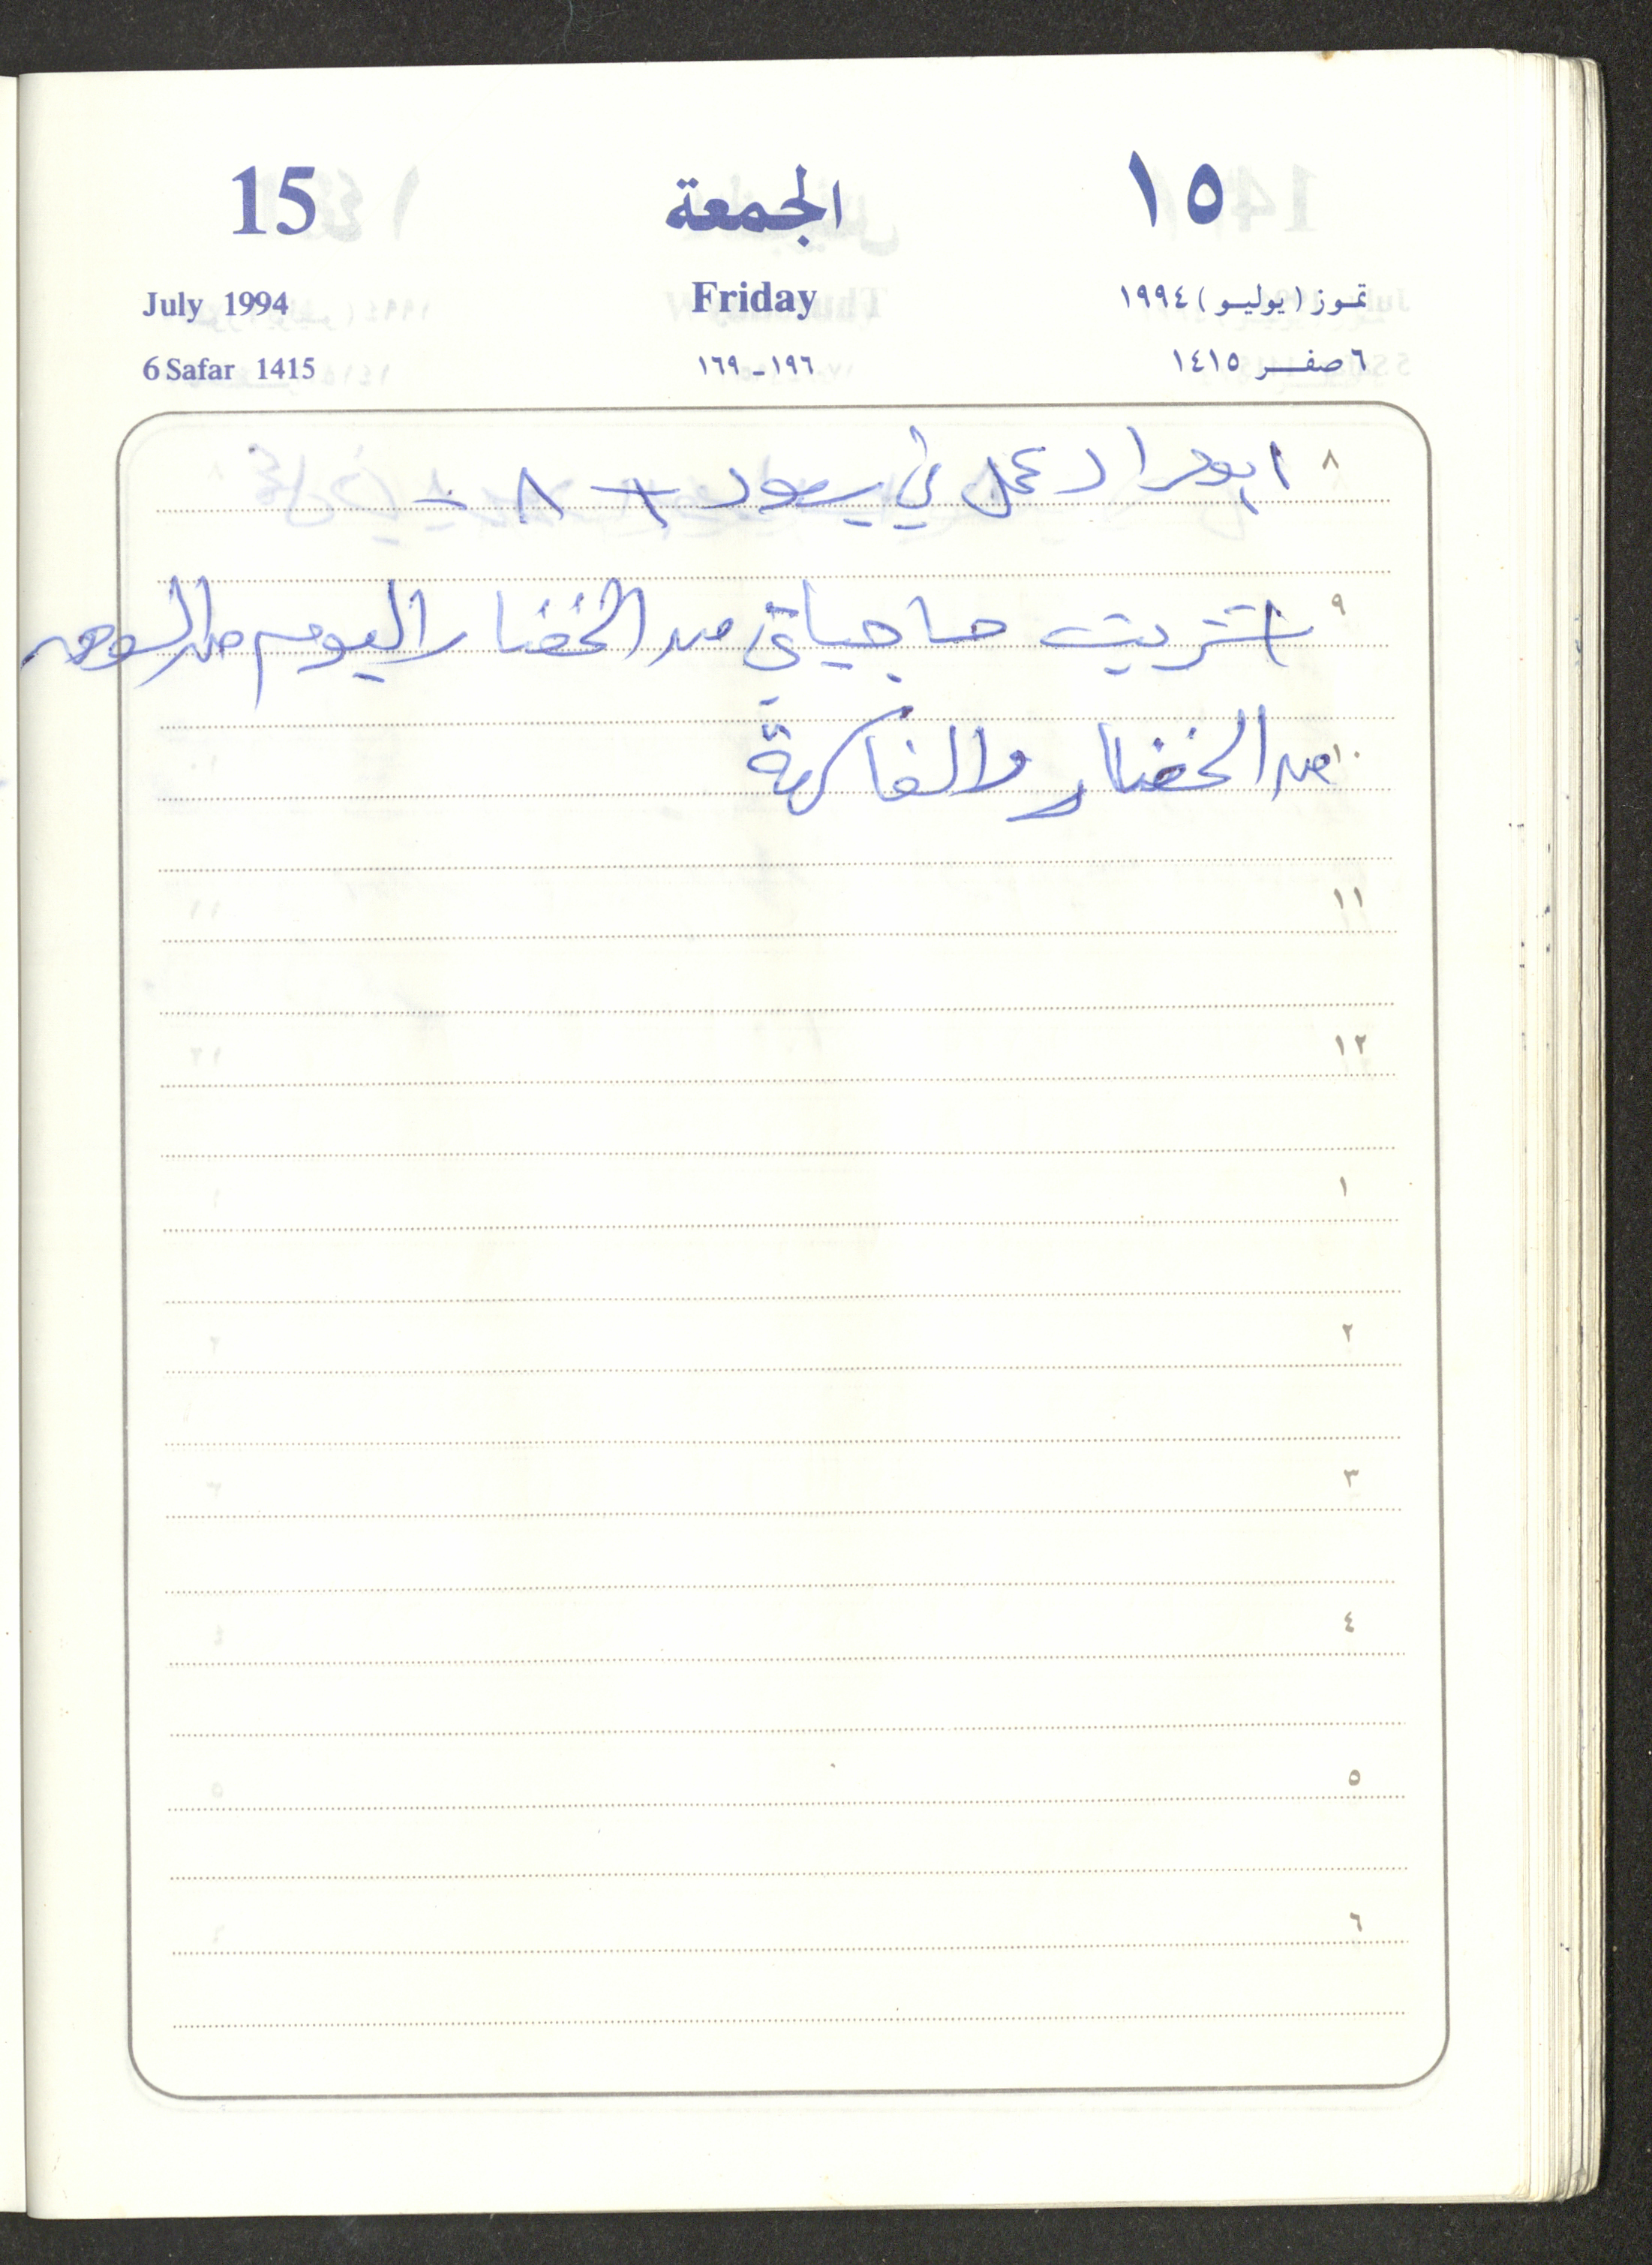 15 الجمعة ١٥
July 1994 Friday تموز (يوليو) ١٩٩٤
6 Safar 1415 ١٩٦-١٦٩ ٦ صفر ١٤١٥
٨ ابومراد عمل في + ٨ -
٩ اشتريت حاجياتي من الخضار اليوم من السوق
١٠ من الخضار والفاكهة
١١
١٢
١
٢
٣
٤
٥
٦